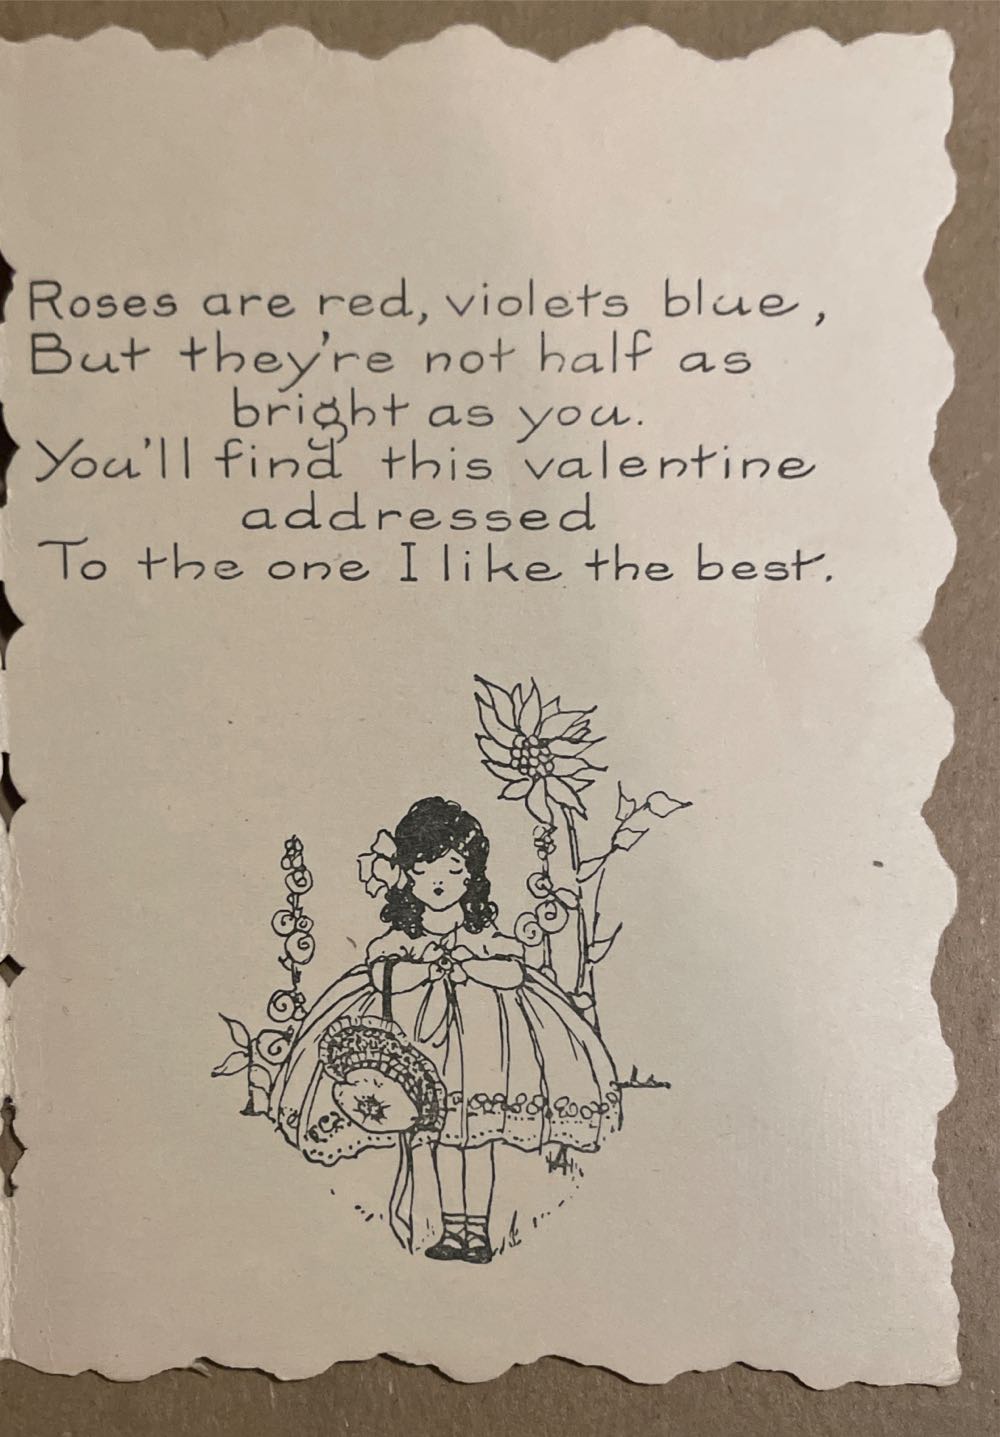 Roses are red, violets blue,
But they're not half as
bright as you.
You'll find this valentine
addressed
To the one I like the best.